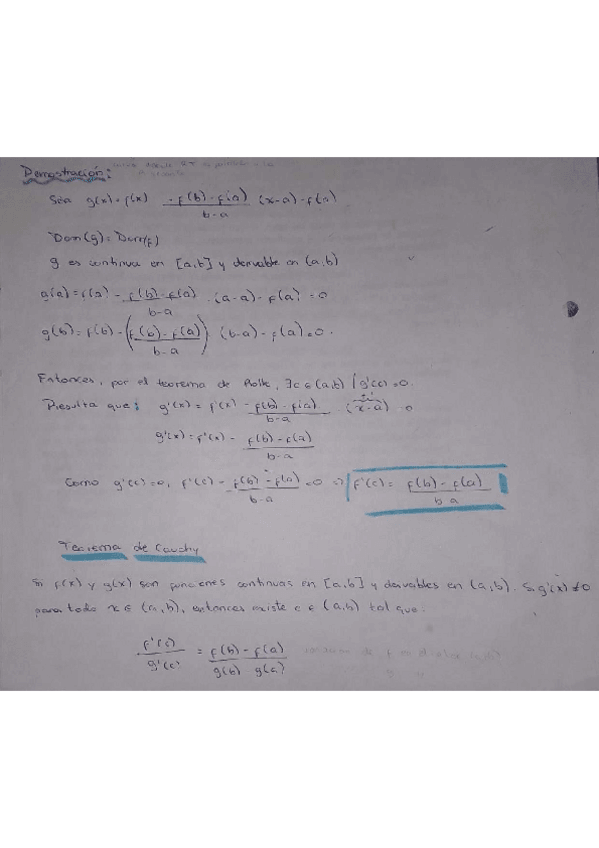 Demostración:
Sea g(x) = f(x) - f(b)-f(a)/b-a (x-a) - f(a)
Dom(g) = Dom(f)
g es continua en [a,b] y derivable en (a,b)
g(a) = f(a) - f(b)-f(a)/b-a . (a-a) - f(a) = 0
g(b) = f(b) - (f(b)-f(a)/b-a) (b-a) - f(a) = 0.
Entonces, por el teorema de Rolle, ∃c∈(a,b) / g'(c) = 0.
Resulta que: g'(x) = f'(x) - f(b)-f(a)/b-a . (x-a) - 0
g'(x) = f'(x) - f(b)-f(a)/b-a
Como g'(c) = 0, f'(c) - f(b)-f(a)/b-a = 0 ⇒ f'(c) = f(b)-f(a)/b-a
Teorema de Cauchy
Si f(x) y g(x) son funciones continuas en [a,b] y derivables en (a,b). Si g'(x) ≠ 0
para todo x ∈ (a,b), entonces existe c ∈ (a,b) tal que:
f'(c)/g'(c) = f(b)-f(a)/g(b) g(a)